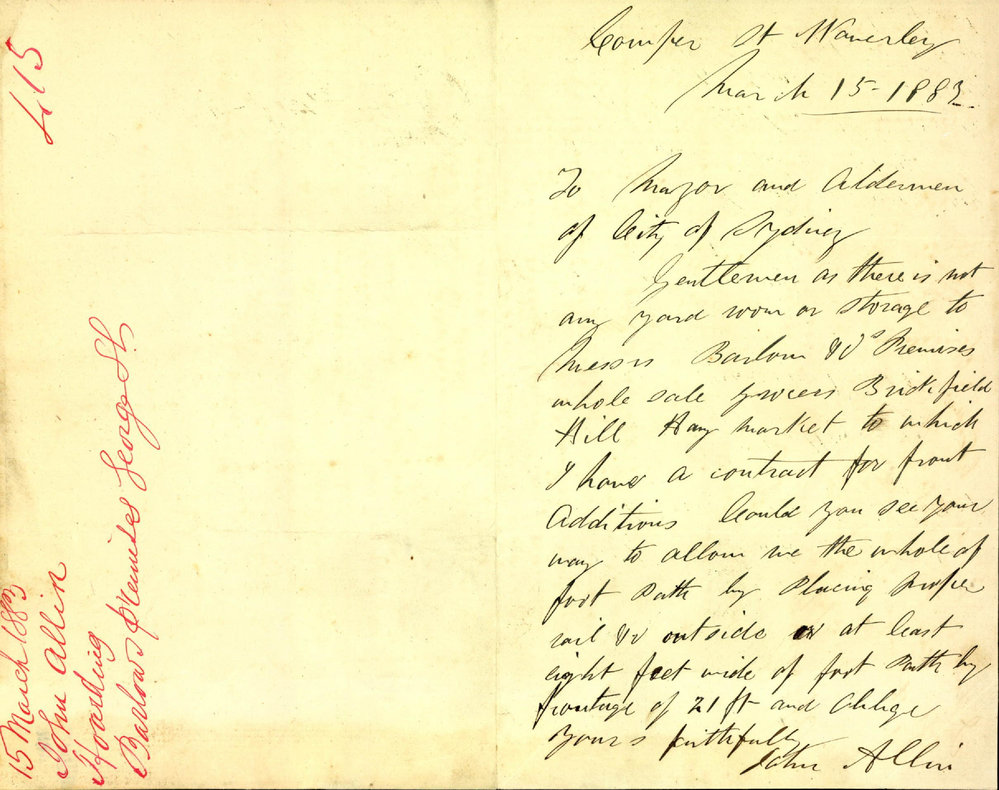 415
15 March 1883
John Allin
Hoarding
Barlows premises George St.
Cowper St Waverley
March 15-1883
To Mayor and Aldermen
of City of Sydney
Gentlemen as there is not
any yard room or storage to
Messrs Barlow &Co Premises
whole sale grocers Brickfield
Hill Hay market to which
I have a contract for front
Additions Could you see your
way to allow me the whole of
foot Path by Placing Proper
rail &c outside or at least
eight feet wide of foot Path by
frontage of 21 ft and Oblige
Yours faithfully
John Allin